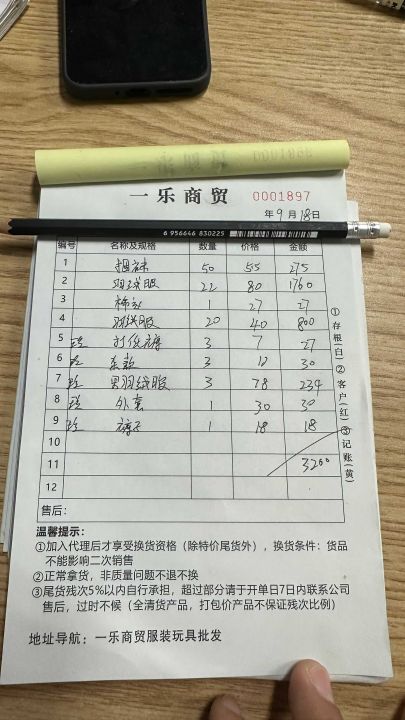 0001898
一乐商贸 0001897
年 9 月 18 日
6 956646 830225
编号 名称及规格 数量 价格 金额
1 50 55 275
2 羽绒服 22 80 1760
3 棉衣 1 27 27
4 羽绒服 20 40 800
5 打底裤 3 7 27
6 3 10 30
7 男羽绒服 3 78 234
8 外套 1 30 30
9 裤子 1 18 18
10
11 3200
12
售后：
①存根(白)②客户(红)③记账(黄)
温馨提示：
①加入代理后才享受换货资格（除特价尾货外），换货条件：货品
不能影响二次销售
②正常拿货，非质量问题不退不换
③尾货残次5%以内自行承担，超过部分请于开单日7日内联系公司
售后，过时不候（全清货产品，打包价产品不保证残次比例）
地址导航：一乐商贸服装玩具批发